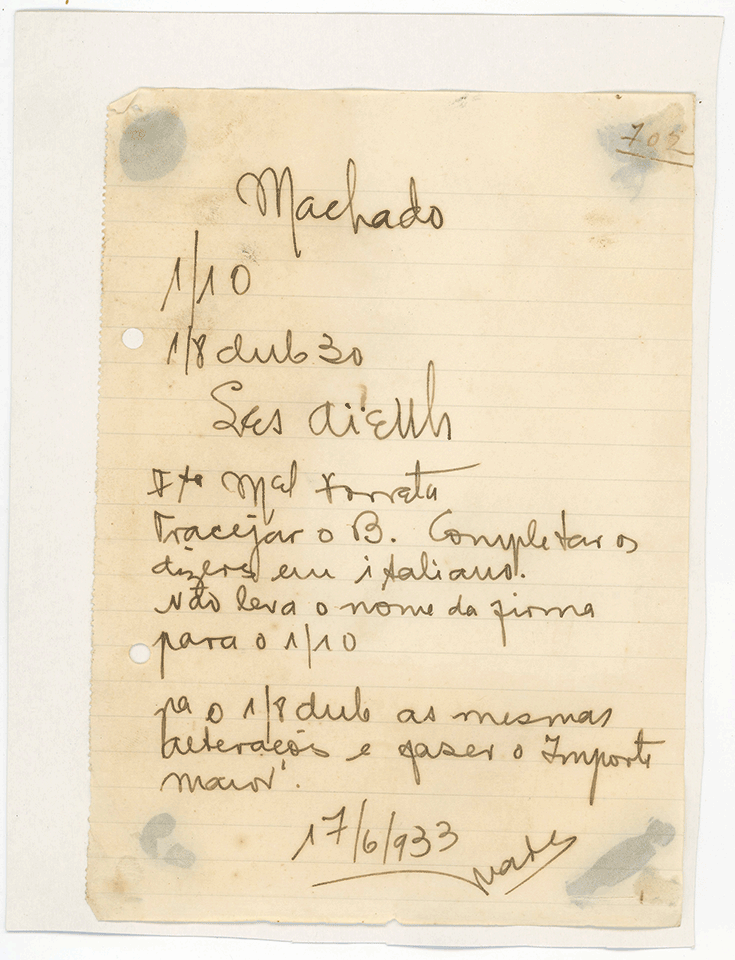 705
Machado
1/10
1/8 dub 30
Mel
Tracejar o B. Completar os
dizeres em italiano.
Não leva o nome da firma
para o 1/10
pa o 1/8 dub as mesmas
alterações e fazer o Importe
maior.
17/6/933